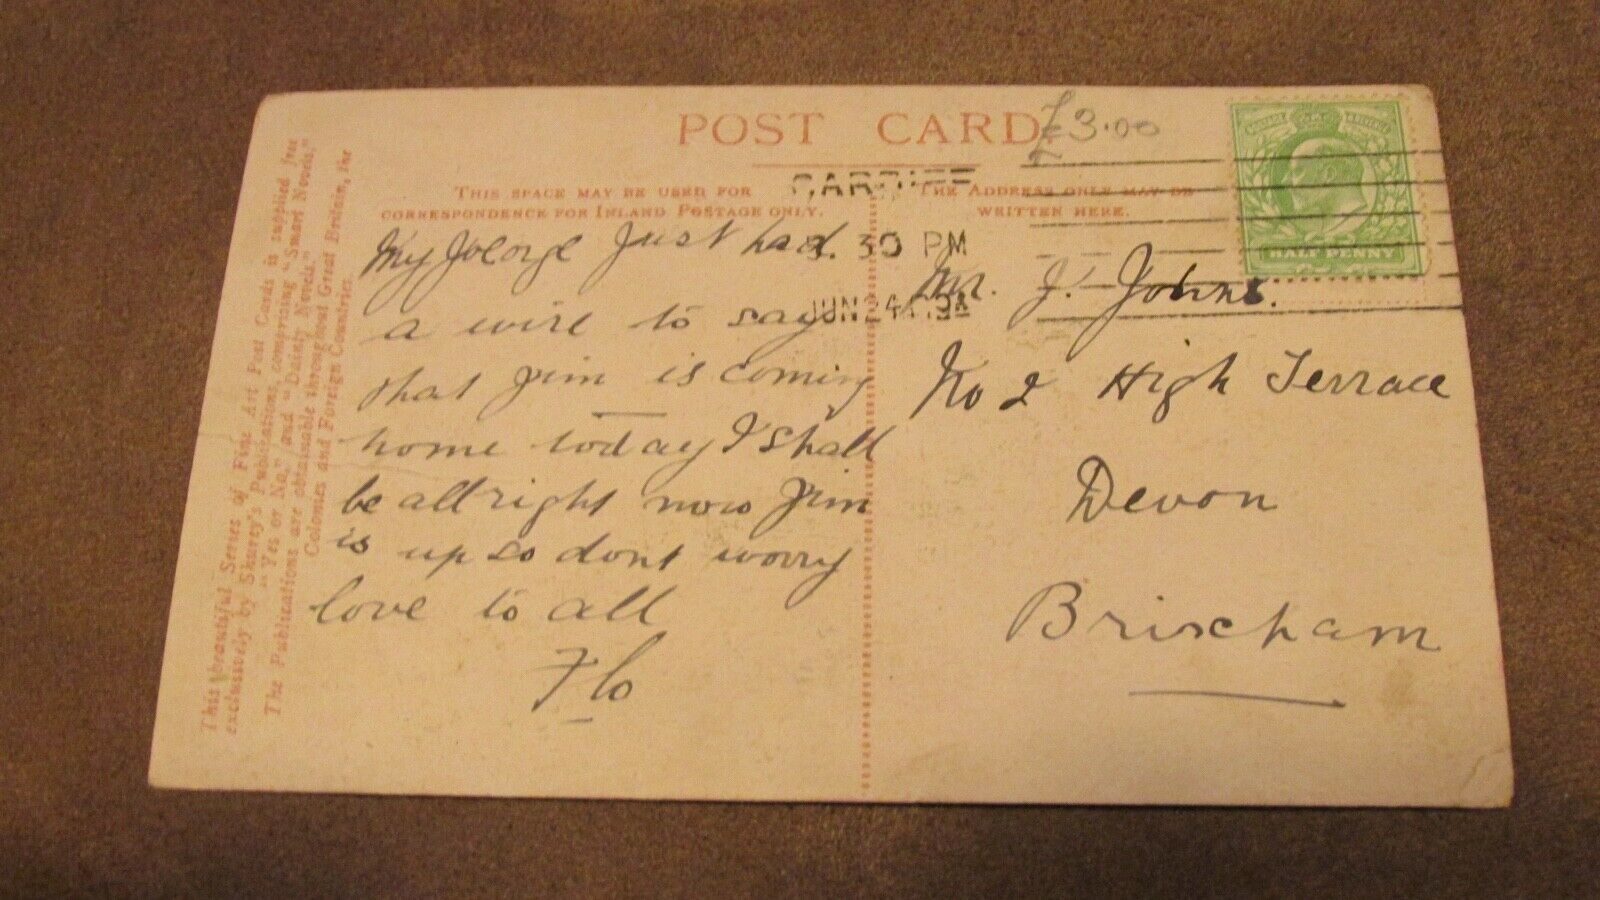 POST CARD
£3.00
THIS SPACE MAY BE USED FOR
CORRESPONDENCE FOR INLAND POSTAGE ONLY.
THE ADDRESS ONLY MAY BE
WRITTEN HERE.
CARDIFF
30 PM
JUN 24
HALF PENNY
My George Just had
a wire to say
that Jim is coming
home today I shall
be allright now Jim
is up so dont worry
love to all
Flo
Mr. J. Johns.
No 2 High Terrace
Devon
Brixham
This beautiful Series of Fine Art Post Cards is supplied free
exclusively by Shurey's Publications, comprising "Smart Novels,"
"Yes or No," and "Dainty Novels."
The Publications are obtainable throughout Great Britain, the
Colonies and Foreign Countries.